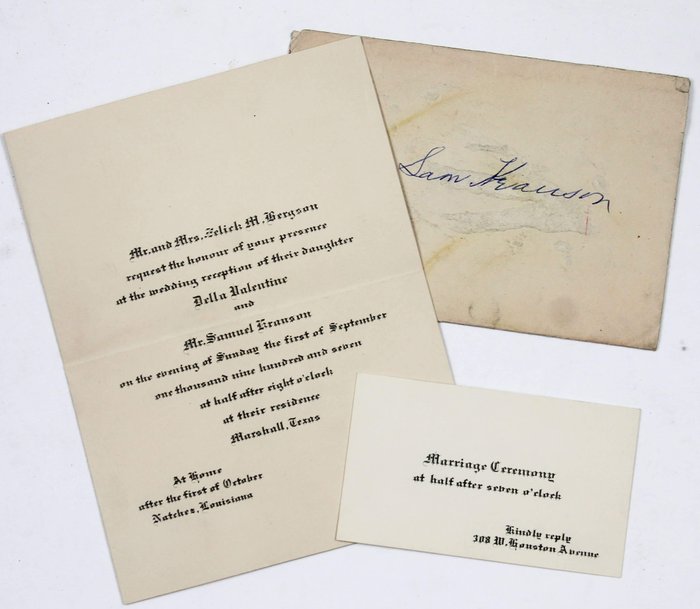 Mr. and Mrs. Zelick M. Bergson
request the honour of your presence
at the wedding reception of their daughter
Della Valentine
and
Mr. Samuel Kranson
on the evening of Sunday the first of September
one thousand nine hundred and seven
at half after eight o'clock
at their residence
Marshall, Texas
At Home
after the first of October
Natchez, Louisiana
Sam Kranson
Marriage Ceremony
at half after seven o'clock
Kindly reply
308 W. Houston Avenue